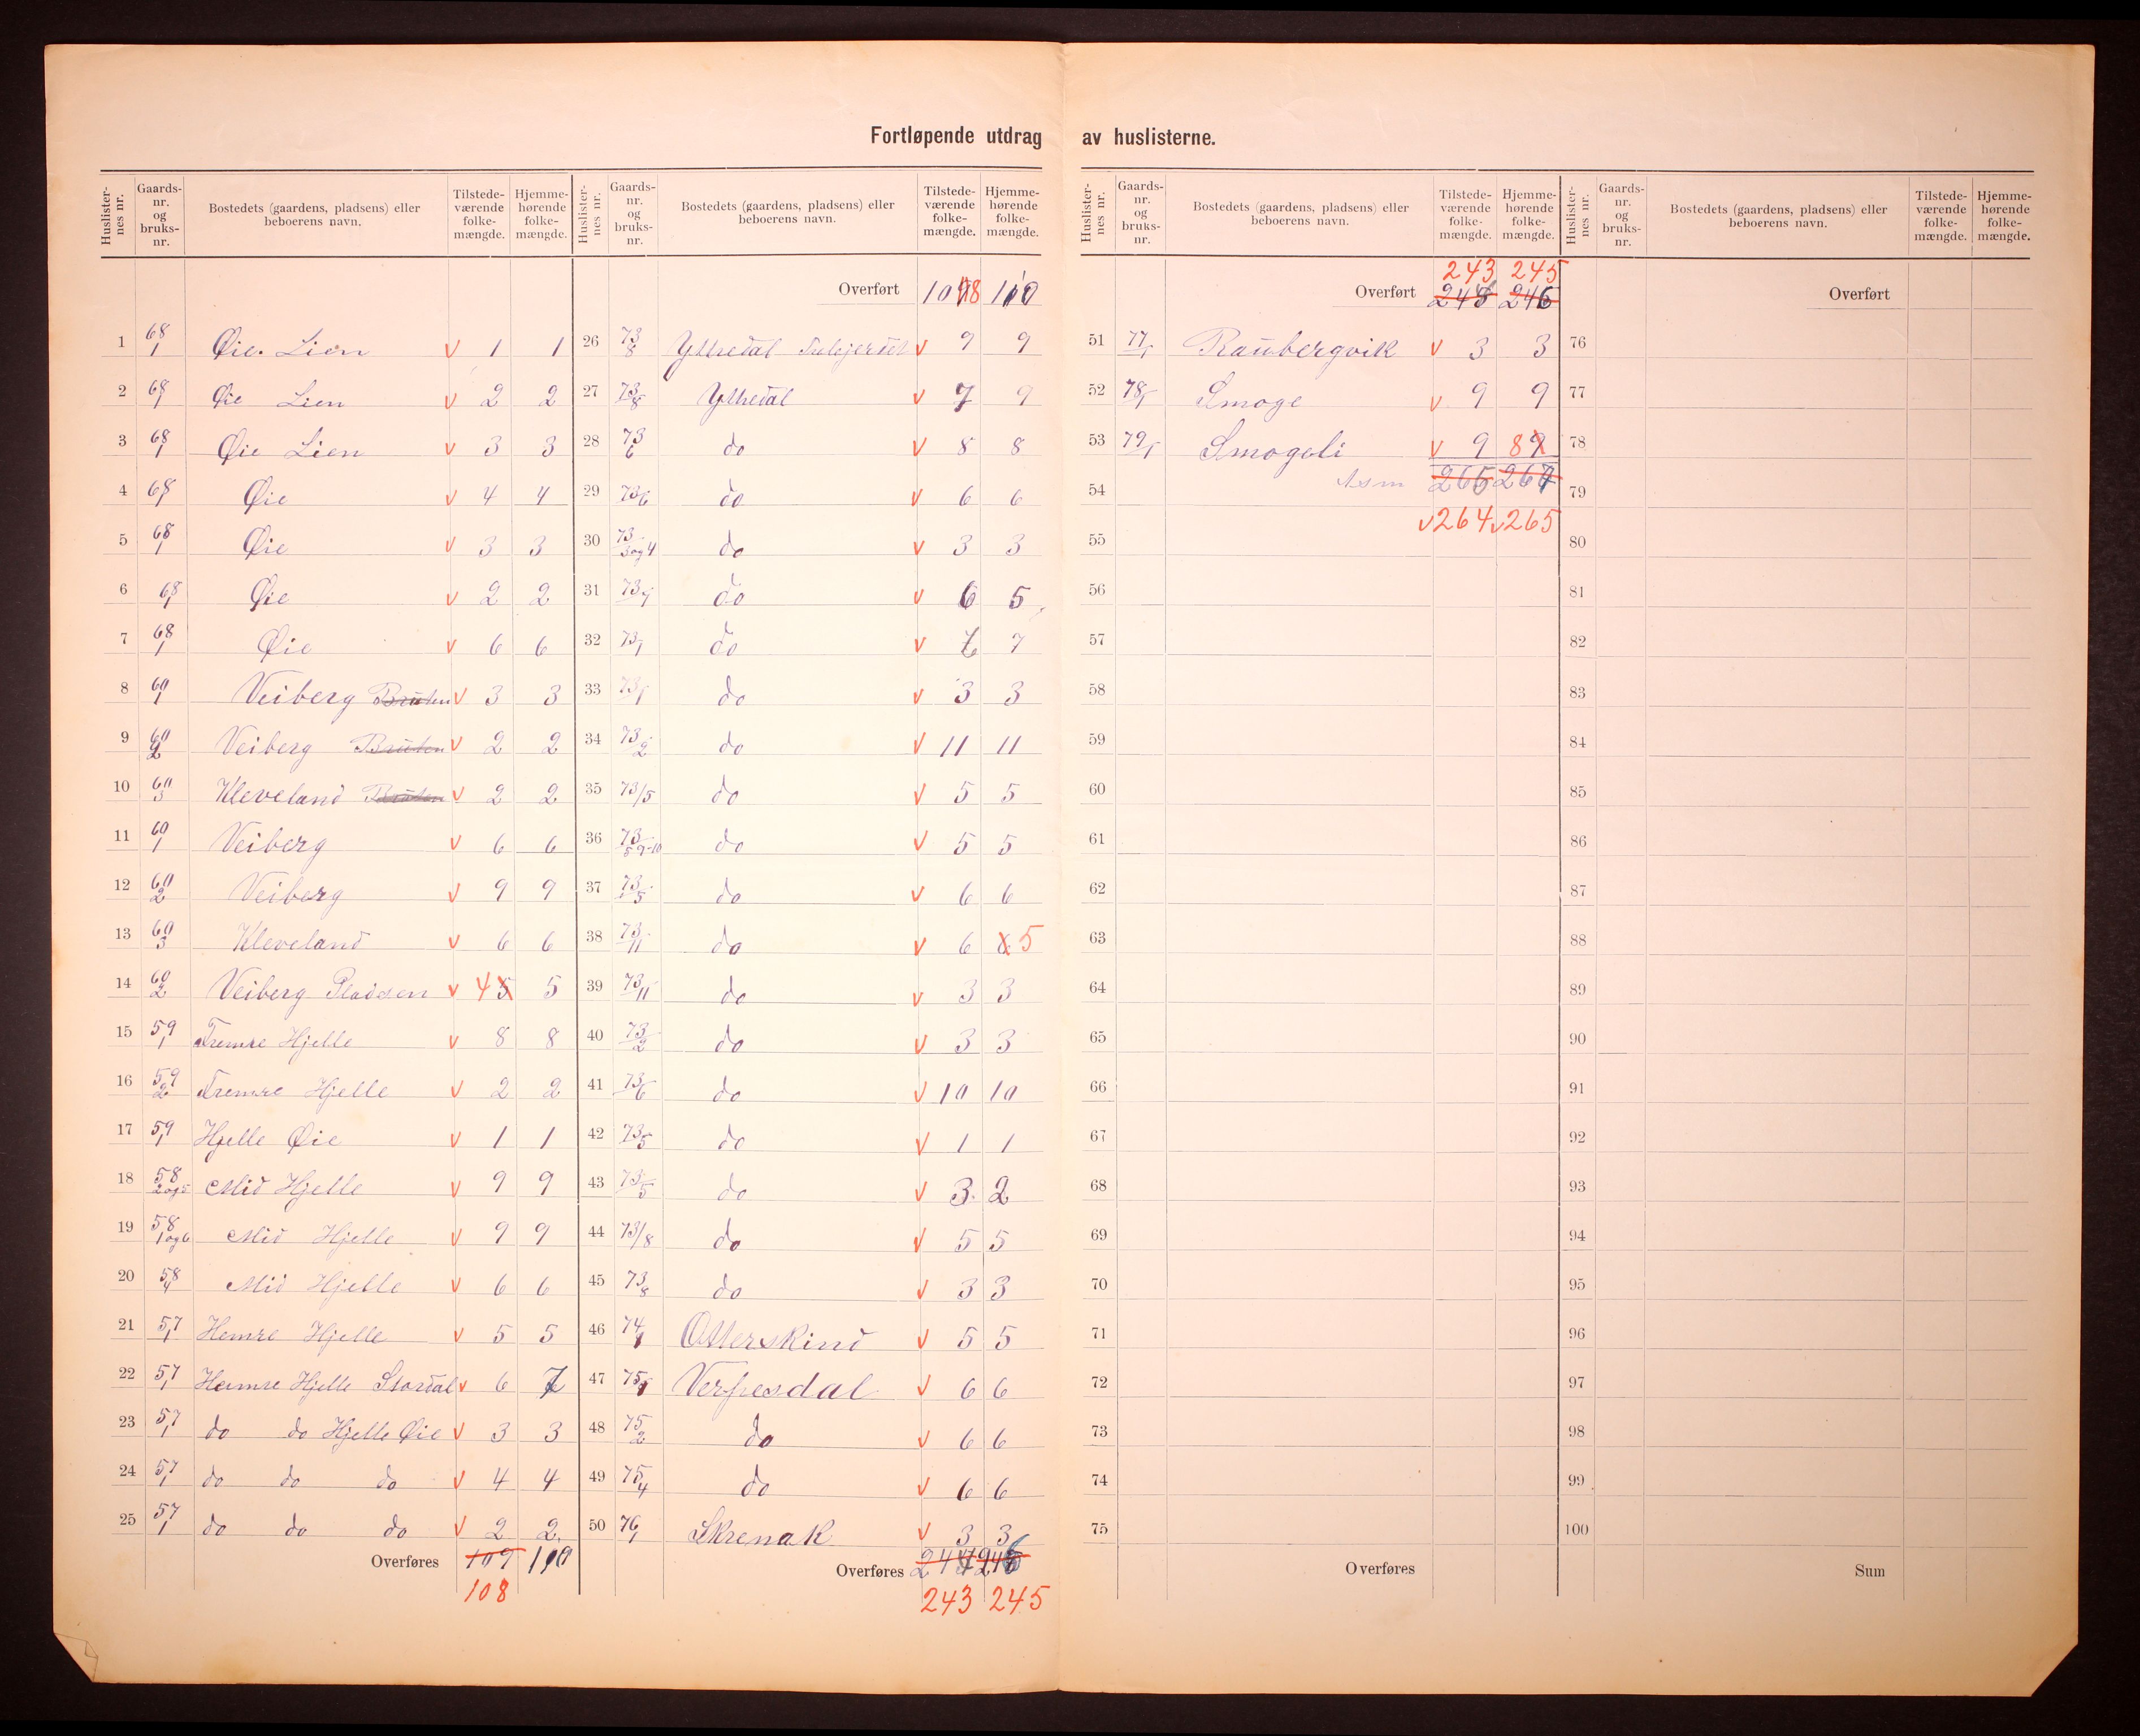 Fortløpende utdrag av huslisterne.
Huslister-nes nr. Gaards-nr. og bruks-nr. Bostedets (gaardens, pladsens) eller beboerens navn. Tilstede-værende folke-mængde. Hjemme-hørende folke-mængde.
1 68/1 Øie. Lien v 1 1
2 68/1 Øie Lien v 2 2
3 68/1 Øie Lien v 3 3
4 68/1 Øie v 4 4
5 68/1 Øie v 3 3
6 68/1 Øie v 2 2
7 68/1 Øie v 6 6
8 60/1 Veiberg Bruten v 3 3
9 60/2 Veiberg Bruten v 2 2
10 60/3 Kleveland Bruten v 2 2
11 60/1 Veiberg v 6 6
12 60/2 Veiberg v 9 9
13 60/3 Kleveland v 6 6
14 60/2 Veiberg Pladsen v 4 5 5
15 59/1 Fremre Hjelle v 8 8
16 59/2 Fremre Hjelle v 2 2
17 59/1 Hjelle Øie v 1 1
18 58/2og5 Mid Hjelle v 9 9
19 58/1og6 Mid Hjelle v 9 9
20 58/4 Mid Hjelle v 6 6
21 57/1 Hemre Hjelle v 5 5
22 57/1 Hemre Hjelle Stordal v 6 7
23 57/1 do do Hjelle Øie v 3 3
24 57/1 do do do v 4 4
25 57/1 do do do v 2 2
Overføres 109 110
108
Huslister-nes nr. Gaards-nr. og bruks-nr. Bostedets (gaardens, pladsens) eller beboerens navn. Tilstede-værende folke-mængde. Hjemme-hørende folke-mængde.
Overført 109 108 110
26 73/8 Yttredal v 9 9
27 73/8 Yttredal v 7 9
28 73/6 do v 8 8
29 73/6 do v 6 6
30 73/3og4 do v 3 3
31 73/7 do v 6 5
32 73/1 do v 7 7
33 73/1 do v 3 3
34 73/2 do v 11 11
35 73/5 do v 5 5
36 73/8 9-10 do v 5 5
37 73/5 do v 6 6
38 73/11 do v 6 6 5
39 73/11 do v 3 3
40 73/2 do v 3 3
41 73/6 do v 10 10
42 73/5 do v 1 1
43 73/5 do v 3 2
44 73/8 do v 5 5
45 73/8 do v 3 3
46 74/1 Otterskind v 5 5
47 75/1 Verpesdal v 6 6
48 75/2 do v 6 6
49 75/4 do v 6 6
50 76/1 Skrenak v 3 3
Overføres 244 246
243 245
Huslister-nes nr. Gaards-nr. og bruks-nr. Bostedets (gaardens, pladsens) eller beboerens navn. Tilstede-værende folke-mængde. Hjemme-hørende folke-mængde.
243 245
Overført 244 246
51 77/1 Raubergvik v 3 3
52 78/1 Smoge v 9 9
53 79/1 Smogeli v 9 8 9
54 265 267
55 v 264 v 265
56
57
58
59
60
61
62
63
64
65
66
67
68
69
70
71
72
73
74
75
Overføres
Huslister-nes nr. Gaards-nr. og bruks-nr. Bostedets (gaardens, pladsens) eller beboerens navn. Tilstede-værende folke-mængde. Hjemme-hørende folke-mængde.
Overført
76
77
78
79
80
81
82
83
84
85
86
87
88
89
90
91
92
93
94
95
96
97
98
99
100
Sum